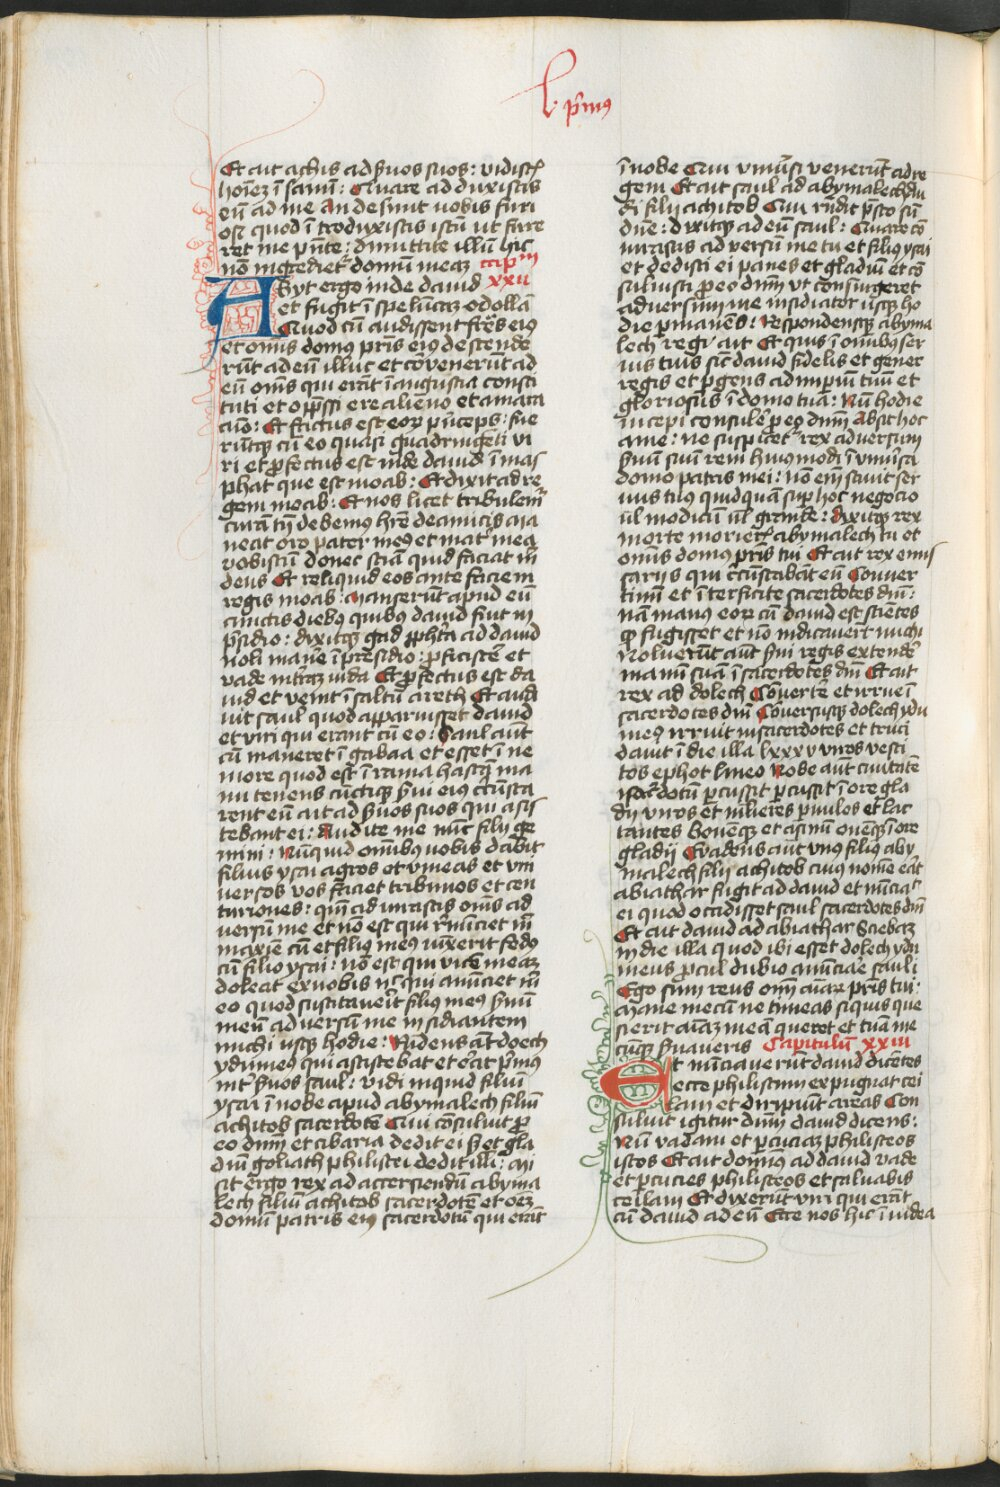 l. pͥmꝯ
Et ait achis ad s̄uos suos: vidistꝭ
hoīez īsanū: Quare adduxistis
eū ad me An desunt nobis furi
osi quod ītroduxistis istū ut fure
ret me pn̄te: dimittite illū hic
nō ingrediet᷑ domū meaꝫ capᵐ
xxii
Abyt ergo inde dauid
et fugit ī spelūcaꝫ odollā
Quod cū audissent fr̄es eiꝯ
et omīs domus pr̄is eiꝯ descende
rūt ad eū illuc et cōvenerūt ad
eū om̄s qui erāt ī angustia consti
tuti et opp̄ssi ere alieno et amara
aīo: Et factus est eoꝝ pͥnceps: fue
rūtqꝫ cū eo quasi quadringēti vi
ri et ꝓfectus est inde dauid ī mas
phat que est moab: Et dixit ad re
gem moab:
neat oro pater meꝯ et mat᷑ mea
vobiscū donec sciā quid faciat m̄
deus Et reliquid eos ante faciem
regis moab: Manserūt apud eū
cunctis diebꝯ quibꝯ dauid fuit in
p̄sidio: dixitqꝫ gad ꝓph̄a ad dauid
Noli man̄e ī presidio: ꝓficiscē et
vade in t̄raꝫ iuda Et ꝓfectus est da
uid et venit ī saltū areth Et audi
uit saul quod apparuisset dauid
et viri qui erant cū eo: Saul aūt
cū maneret ī gabaa et esset ī ne
more quod est ī rama hastā ma
nu tenens cūctiqꝫ s̄ui eiꝯ circūsta
rent eū ait ad s̄uos suos qui asis
tebant ei: Audite me nūc filij ge
mini: Nūquid omībꝯ vobis dabit
filius ysai agros et vineas et vni
versos vos faciet tribunos et cen
turiones: qm̄ adiurastis om̄s ad
versū me et nō est qui r̄nūciet m̄
maxīe cū et filiꝯ meꝯ iūxerit fedꝯ
cū filio ysai: nō est qui vicē meaꝫ
doleat ex vobis nͨ qui anūciet m̄
eo quod suscitaverit filiꝯ meꝯ s̄uum
meū adversū me insidiantem
michi usqꝫ hodie: Rn̄dens aūt doech
ydumeꝯ qui asistebat et erat pͥmꝯ
int᷑ s̄uos saul: vidi inquid filiū
ysai ī nobe apud abymalech filiū
achitob sacerdotē Qui cōsuluit ꝓ
eo dn̄m et cibaria dedit ei sꝫ et gla
diū goliath philistei dedit illi: Mi
sit ergo rex ad accersiendū abyma
lech filiū achitob sacerdotē et oēꝫ
domū patris eiꝯ sacerdotū qui erāt
ī nobe Qui vniūsi venerūt ad re
gem Et ait saul ad abymalech Au
di fili achitob Qui rn̄dit p̄sto sū
dn̄e: dixitqꝫ ad eū saul: Quare cō
iurastis adversū me tu et filiꝯ ysai
et dedisti ei panes et gladiū et cō
suluisti ꝓ eo dn̄m ut consurgeret
adversum me insidiator usqꝫ ho
die ꝑmanēs: Respondensqꝫ abyma
lech regi ait Et quis ī omībꝯ ser
uis tuis sic̄ dauid fidelis et gener
regis et ꝑgens ad imꝑiū tuū et
gloriosus ī domo tua: Nū hodie
incepi consulē ꝓ eo dn̄m Absit hoc
a me: ne suspicet᷑ rex adversum
s̄uū suū rem huiꝯmodi ī vniūsa
domo patris mei: nō em̄ sciuit ser
uus tuꝯ quidquā suꝑ hoc negocio
ul̄ modicū ul̄ grande: dixitqꝫ rex
morte morierꝭ abymalech tu et
omīs domus pr̄is tui Et ait rex emis
sarijs qui circūstabāt eū Conver
timī et īterficite sacerdotes dn̄i:
nā manus eoꝝ cū dauid est sciētes
ꝙ fugisset et nō indicauerūt michi
Noluerūt aūt s̄ui regis extendē
manū suā ī sacerdotes dn̄i Et ait
rex ad doech Convertē et irrue ī
sacerdotes dn̄i Conversusqꝫ doech ydu
meꝯ irruit in sacerdotes et truci
dauit ī die illa lxxxv viros vesti
tos ephot lineo Nobe aūt ciuitatē
sacerdotū percussit ꝑcussit ī ore gla
dij viros et mlieres ꝑuulos et lac
tantes bovemqꝫ et asinū ouēqꝫ ī ore
gladij Evadens aūt vnꝯ filiꝯ aby
malech filij achitob cuiꝯ nomē erāt
abiathar fugit ad dauid et nūciaͭ
ei quod occidisset saul sacerdotes dn̄i
Et ait dauid ad abiathar Sciebaꝫ
in die illa quod ibi esset doech ydu
meus ꝓcul dubio anūciare sauli
Ego sum reus om̄i aīaꝝ pr̄is tui:
Mane mecū ne timeas si quis que
sierit aīaꝫ meā queret et tuā me
cūqꝫ s̄uaueris Capitulū xxiii
Et nūciauerūt dauid dicētes
ecce philistiim expugnāt cei
lam et diripiūt areas Con
suluit igitur dn̄m dauid dicens:
Nū vadam et ꝑcuciaꝫ philisteos
istos Et ait domīnꝯ ad dauid vade
et ꝑcucies philisteos et saluabis
ceilam Et dixerūt viri qui erāt
cū dauid ad eū Ecce nos hic ī iudea